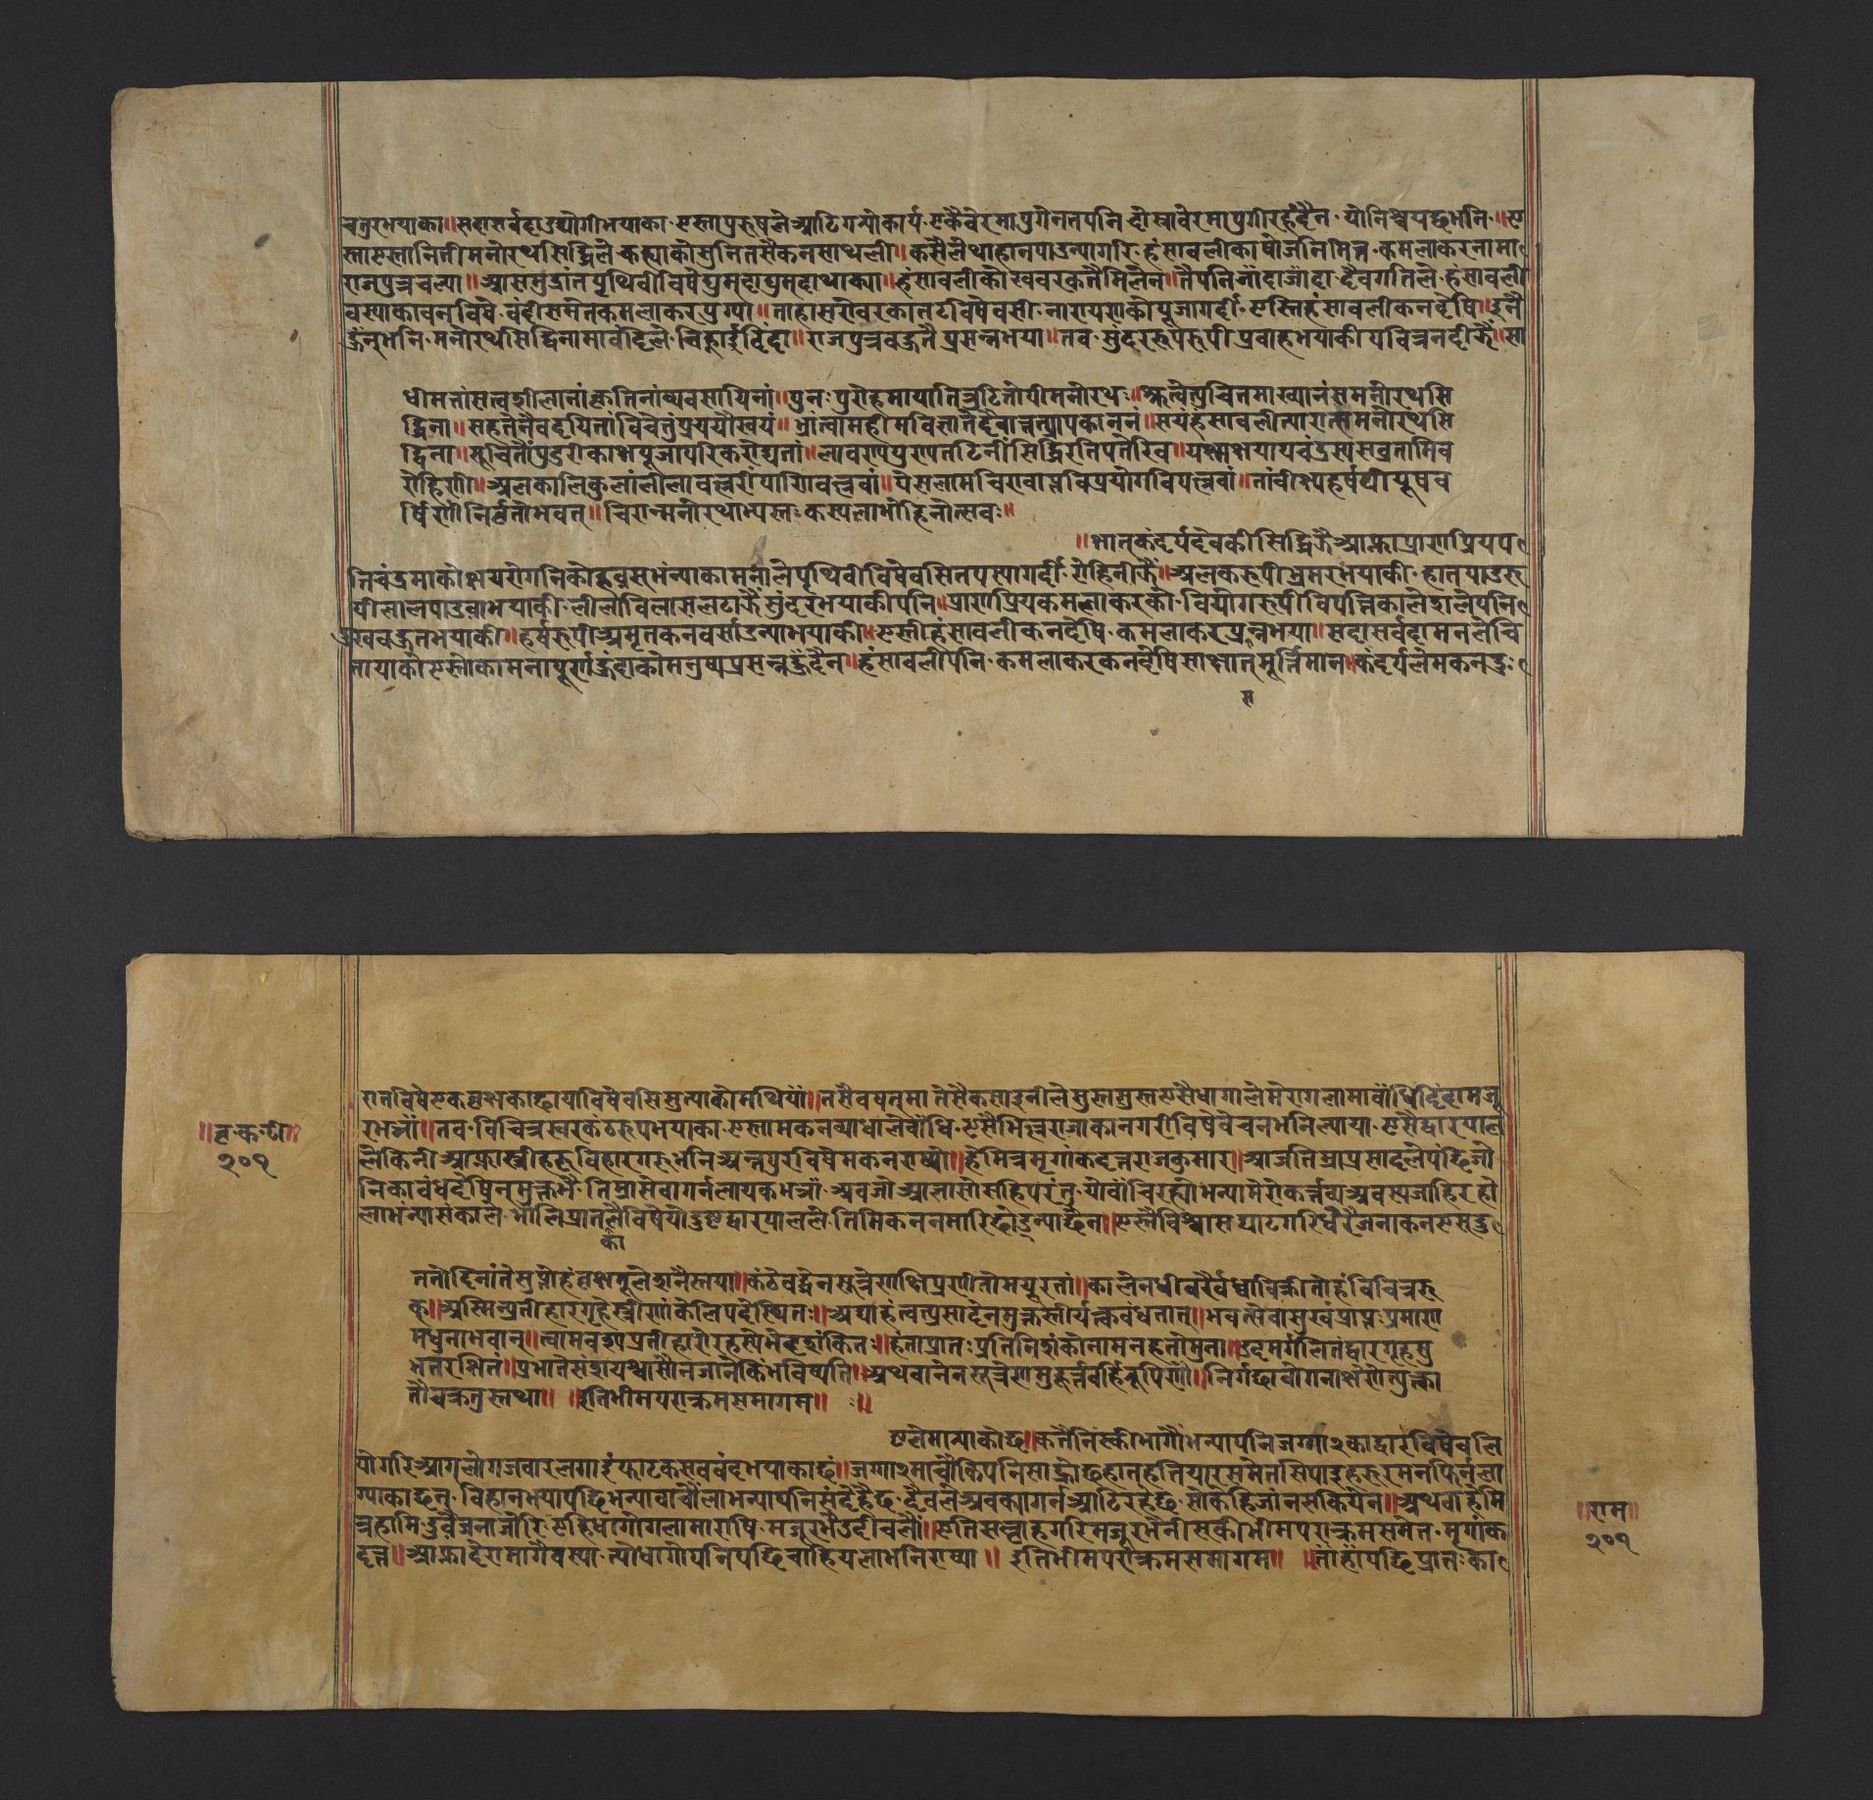 चतुरभयाका॥सदासर्वदाउद्योगीभयाका एस्तापुरुषले आटिगर्‍याकोकार्य एकैवेरमापुगेनतपनि दोस्रावेरमापुगीरहंदैन योनिश्चयछभनि॥ए
स्ताएस्तानितीमनोरथसिद्धिले कह्याकोसुनितसैकनसाथली॥कसैलेथाहानपाउन्यागरि हंसावलीकाषोजनिमित्त कमलाकरनामा
राजपुत्रचल्या॥आसमुद्रांतपृथिवीविषेघुम्दाघुम्दाथाक्या॥हंसावलीकोखवरकतैमिलेन॥तैपनिजांदाजांदा दैवगतिले हंसावली
वस्याकावनविषे वंदीसमेतकमलाकरपुग्या॥ताहासरोवरकातटविषेवसी नारायणकोपूजागर्दी एस्तिहंसावलीकनदेषि॥इनै
हुंन्भनि मनोरथसिद्धिनामावंदिले चिह्नाईदिंदा॥राजपुत्रवहुतै प्रसन्नभया॥तव सुंदररूपरूपी प्रवाहभयाकी पवित्रनदीझैं॥सा
धीमतांसत्वशीलानांकृतिनांव्यवसायिनां॥पुनः पुरोहमायातित्रुटितोपीमनोरथः॥श्रुत्वेत्युचितमाख्यानंसमनोरथसि
द्धिना॥सहतेनैवदयितांविचेतुंप्रययौस्वयं॥भ्रांत्वामहीमविज्ञातंदैवात्तत्प्रापकाननं॥सयंहंसावलीन्यारात्समनोरथसि
द्धिना॥सूचितांपुंडरीकाक्षपूजापरिकरोद्यतां॥लावण्यपुण्यतटिनींसिद्धिरतिपतेरिव॥यक्ष्मक्षयायचंद्रस्यसव्रतामिव
रोहिणीं॥अलकालिकुलांलीलावल्लरींपाणिपल्लवां॥पेसलामचिरावाप्तविप्रयोगविपल्लवां॥तांवीक्ष्यहर्षपीयूषव
र्षिणींनिर्वृतोभवत्॥चिरान्मनोरथाभ्यस्तः कस्यलाभोहिनोत्सवः॥
॥क्षात्कंदर्पदेवकीसिद्धिझैंआफ्नाप्राणप्रियप
तिचंद्रमाकोक्षयरोगनिकोहुवस्भंन्याकामनालेपृथिवीविषेवसितपस्यागर्दी रोहिनीझैं॥अलकरूपीभ्रमरभयाकी हातपाउरू
पीलालपाउवाभयाकी लीलाविलासलटाझैंसुंदरभयाकीपनि॥प्राणप्रियकमलाकरको वियोगरूपीविपत्तिकालेशलेपनि
दुखवहुतभयाकी॥हर्षरूपीअमृतकनवर्साउन्याभयाकी॥एस्तीहंसावलीकनदेषि कमलाकरप्रन्नभया॥सदासर्वदामनलेचि
तायाकोएस्तोकामनापूर्णहुंदाकोमनुष्यप्रसन्नहुंदैन॥हंसावलीपनि कमलाकरकनदेषिसाक्षात्मूर्त्तिमान्कंदर्पलेमकनदुः
स
॥वृ॰क॰टी॥
२०९
रातविषेएकवृक्षकाछायाविषेवसिसुत्याकोमथियां॥तसैवषत्मा तेसैकसाइनीले सुस्तसुस्तएसैधागालेमेरागलामावांधिदिंदामजू
रभञां॥तव विचित्रस्वरकंठरूपभयाका एस्तामकनव्याधालेवांधि एसैभिल्लराजाकानगरीविषेवेचनभनिल्याया एसैद्वारपाल
लेकिनीआफ्नास्त्रीहरूविहारगरूभनिअन्तपुरविषेमकनराष्यो॥हेमित्रमृगांकदत्तराजकुमार॥आजतिम्राप्रसादलेपंछिजो
निकावंधदेषिन्मुक्तभै तिम्रासेवागर्नलायकभञां अवजोआलासोसहिपरंतु योवांचिरह्योभन्यामेरोकर्त्तव्यअवस्यजाहिरहो
लाभन्यासंकाले भोलिप्रातलैविषेयोदुष्टद्वारपालले तिमिकननमारिछोड्न्याछैन॥एस्तैविश्वासघाटगरिधेरैजनाकनएस्दु
का
ततोदिनांतेसुप्तोहंवृक्षमूलेशनैस्तया॥कंठेवद्धेनसूत्रेणाक्षिप्रंणीतोमयूरतां॥कालेनधीवरैर्वध्वाविक्रीतोहंविचित्ररु
क्॥अस्मिन्प्रतीहारगृहेस्त्रीणांकेलिपदेस्थितः॥अद्याहंत्वत्प्रसादेनमुक्तस्तीर्यत्कवंधनात्॥भवत्सेवासुखंप्राप्तःप्रमाण
मधुनाभवान्॥त्वामवश्यप्रतीहारोरहस्येभेदशंकितः॥हंताप्रातः प्रतिनिशंकोनामनहतोमुना॥इदमर्गलितंद्वारगृहसु
भेतरक्षितं॥प्रभातेसंशयश्चासौनजानेकिंभविष्यति॥अथवानेनसूत्रेणमुहूर्त्तंवर्हिरूपिणौ॥निर्गछावोगवाक्षेणेत्युक्त्वा
तौचक्रतुस्तथा॥ ॥इतिभीमपराक्रमसमागम॥ ॥
ष्टलेमार्‍याकोछ॥कतैनिस्कीभागौंभन्यापनिजग्गा२काद्वारविषेवलि
योगरिआग्लोगजवारलगाईफाटकसववंदभयाकाछं॥जग्गा२माचौकिपनिसाह्रोछहात्हतियारसमेतसिपाइहरूरमनफिर्नला
ग्याकाछन् विहानभयापछिभन्यावाचौलाभन्यापनिसंदेहैछ दैवलेअवक्यागर्नआटिरहेछ सोकेहिजांनसकियेन॥अथवाहेमि
त्रहामिदुवैजनाजोरि एहिधागोगलामाराषि मजूरभैउडीचलौं॥एतिसल्लाहगरिमजूरभैनीस्की भीमपराक्रमसमेत मृगांक
दत्त॥आफ्नाडेरामागैवस्या त्योधागोपनिपछिचाहियलाभनिराष्या॥ इतिभीमपराक्रमसमागम॥ ॥तांहांपछिप्रातःका
॥राम॥
२०९